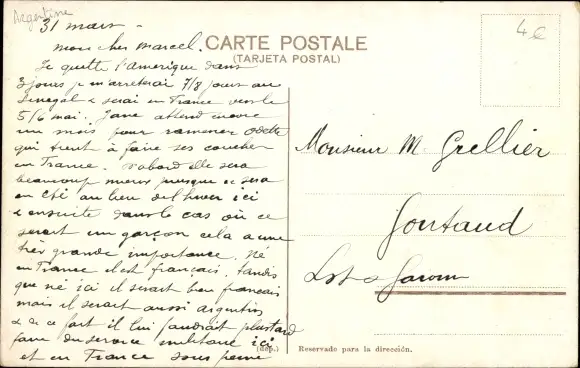 Argentine
31 mars -
mon cher marcel.
Je quitte l'Amerique dans
3 jours je m'arreterai 7/8 jours au
Senegal & serai en France vers le
5/6 mai. Jane attend encore
un mois pour ramener Odette
qui tient à faire ses couches
en France. D'abord elle sera
beaucoup mieux puisque ce sera
en été au lieu de l'hiver ici
& ensuite dans le cas où ce
serait un garçon cela a une
très grande importance. Né
en France il est français. tandis
que né ici il serait bien français
mais il serait aussi argentin
& de ce fait il lui faudrait plus tard
faire du service militaire ici
et en France sous peine
CARTE POSTALE
(TARJETA POSTAL)
4€
Monsieur M. Grellier
Gontaud
Lot & Garonne
(dep.)
Reservado para la dirección.